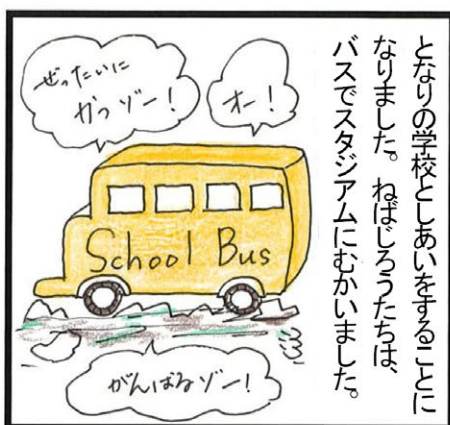 となりの学校としあいをすることに
なりました。ねばじろうたちは、
バスでスタジアムにむかいました。
オー！
ぜったいに
かつゾー！
School Bus
がんばるゾー！